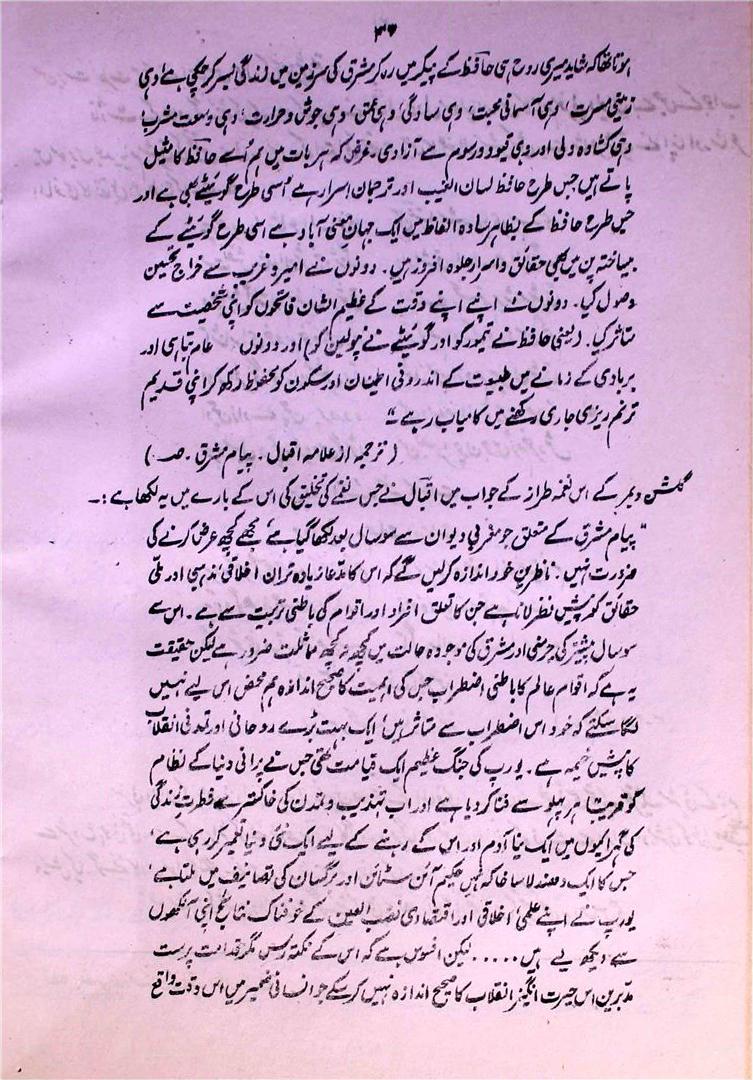 ۳۷
ہوتا تھا کہ شاید میری روح ہی حافظ کے پیکر میں رہ کر مشرق کی سرزمین میں زندگی بسر کر چکی ہے‘ وہی
زمینی مسرت‘ وہی آسمانی محبت‘ وہی سادگی‘ وہی عمق‘ وہی جوش و حرارت‘ وہی وسعت مشرب‘
وہی کشادہ دلی اور وہی قیود و رسوم سے آزادی۔ غرض کہ ہر بات میں ہم اُسے حافظ کا مثیل
پاتے ہیں جس طرح حافظ لسان الغیب اور ترجمان اسرار ہے اُسی طرح گوئٹے بھی ہے اور
جس طرح حافظ کے بظاہر سادہ الفاظ میں ایک جہانِ معنی آباد ہے اسی طرح گوئٹے کے
بیساختہ پن میں بھی حقائق و اسرار جلوہ افروز ہیں۔ دونوں نے امیر و غریب سے خراج تحسین
وصول کیا۔ دونوں نے اپنے اپنے وقت کے عظیم الشان فاتحوں کو اپنی شخصیت سے
متاثر کیا۔ (یعنی حافظ نے تیمور کو اور گوئٹے نے نپولین کو) اور دونوں عام تباہی اور
بربادی کے زمانے میں طبیعت کے اندرونی اطمینان اور سکون کو محفوظ رکھ کر اپنی قدیم
ترنم ریزی جاری رکھنے میں کامیاب رہے“
(ترجمہ از علامہ اقبال۔ پیام مشرق۔ صـ )
گلشن ویمر کے اس نغمہ طراز کے جواب میں اقبال نے جس نغمے کی تخلیق کی اس کے بارے میں یہ لکھا ہے:۔
”پیام مشرق کے متعلق جو مغربی دیوان سے سو سال بعد لکھا گیا ہے‘ مجھے کچھ عرض کرنے کی
ضرورت نہیں۔ ناظرین خود اندازہ کر لیں گے کہ اس کا مدعا زیادہ تر ان اخلاقی‘ مذہبی اور ملی
حقائق کو پیش نظر لانا ہے جن کا تعلق افراد اور اقوام کی باطنی تربیت سے ہے۔ اس سے
سو سال پیشتر کی جرمنی اور مشرق کی موجودہ حالت میں کچھ نہ کچھ مماثلت ضرور ہے لیکن حقیقت
یہ ہے کہ اقوام عالم کا باطنی اضطراب جس کی اہمیت کا صحیح اندازہ ہم محض اس لیے نہیں
لگا سکتے کہ خود اس اضطراب سے متاثر ہیں‘ ایک بہت بڑے روحانی اور تمدنی انقلاب
کا پیش خیمہ ہے۔ یورپ کی جنگ عظیم ایک قیامت تھی جس نے پرانی دنیا کے نظام
کو قریباً ہر پہلو سے فنا کر دیا ہے اور اب تہذیب و تمدن کی خاکستر سے فطرت زندگی
کی گہرائیوں میں ایک نیا آدم اور اس کے رہنے کے لیے ایک نئی دنیا تعمیر کر رہی ہے‘
جس کا ایک دھندلا سا خاکہ ہمیں حکیم آئن سٹائن اور برگسان کی تصانیف میں ملتا ہے‘
یورپ نے اپنے علمی‘ اخلاقی اور اقتصادی نصب العین کے خوفناک نتائج اپنی آنکھوں
سے دیکھ لیے ہیں..... لیکن افسوس ہے کہ اس کے نکتہ رس مگر قدامت پرست
مدبرین اس حیرت انگیز انقلاب کا صحیح اندازہ نہیں کر سکے جو انسانی ضمیر میں اس وقت واقع